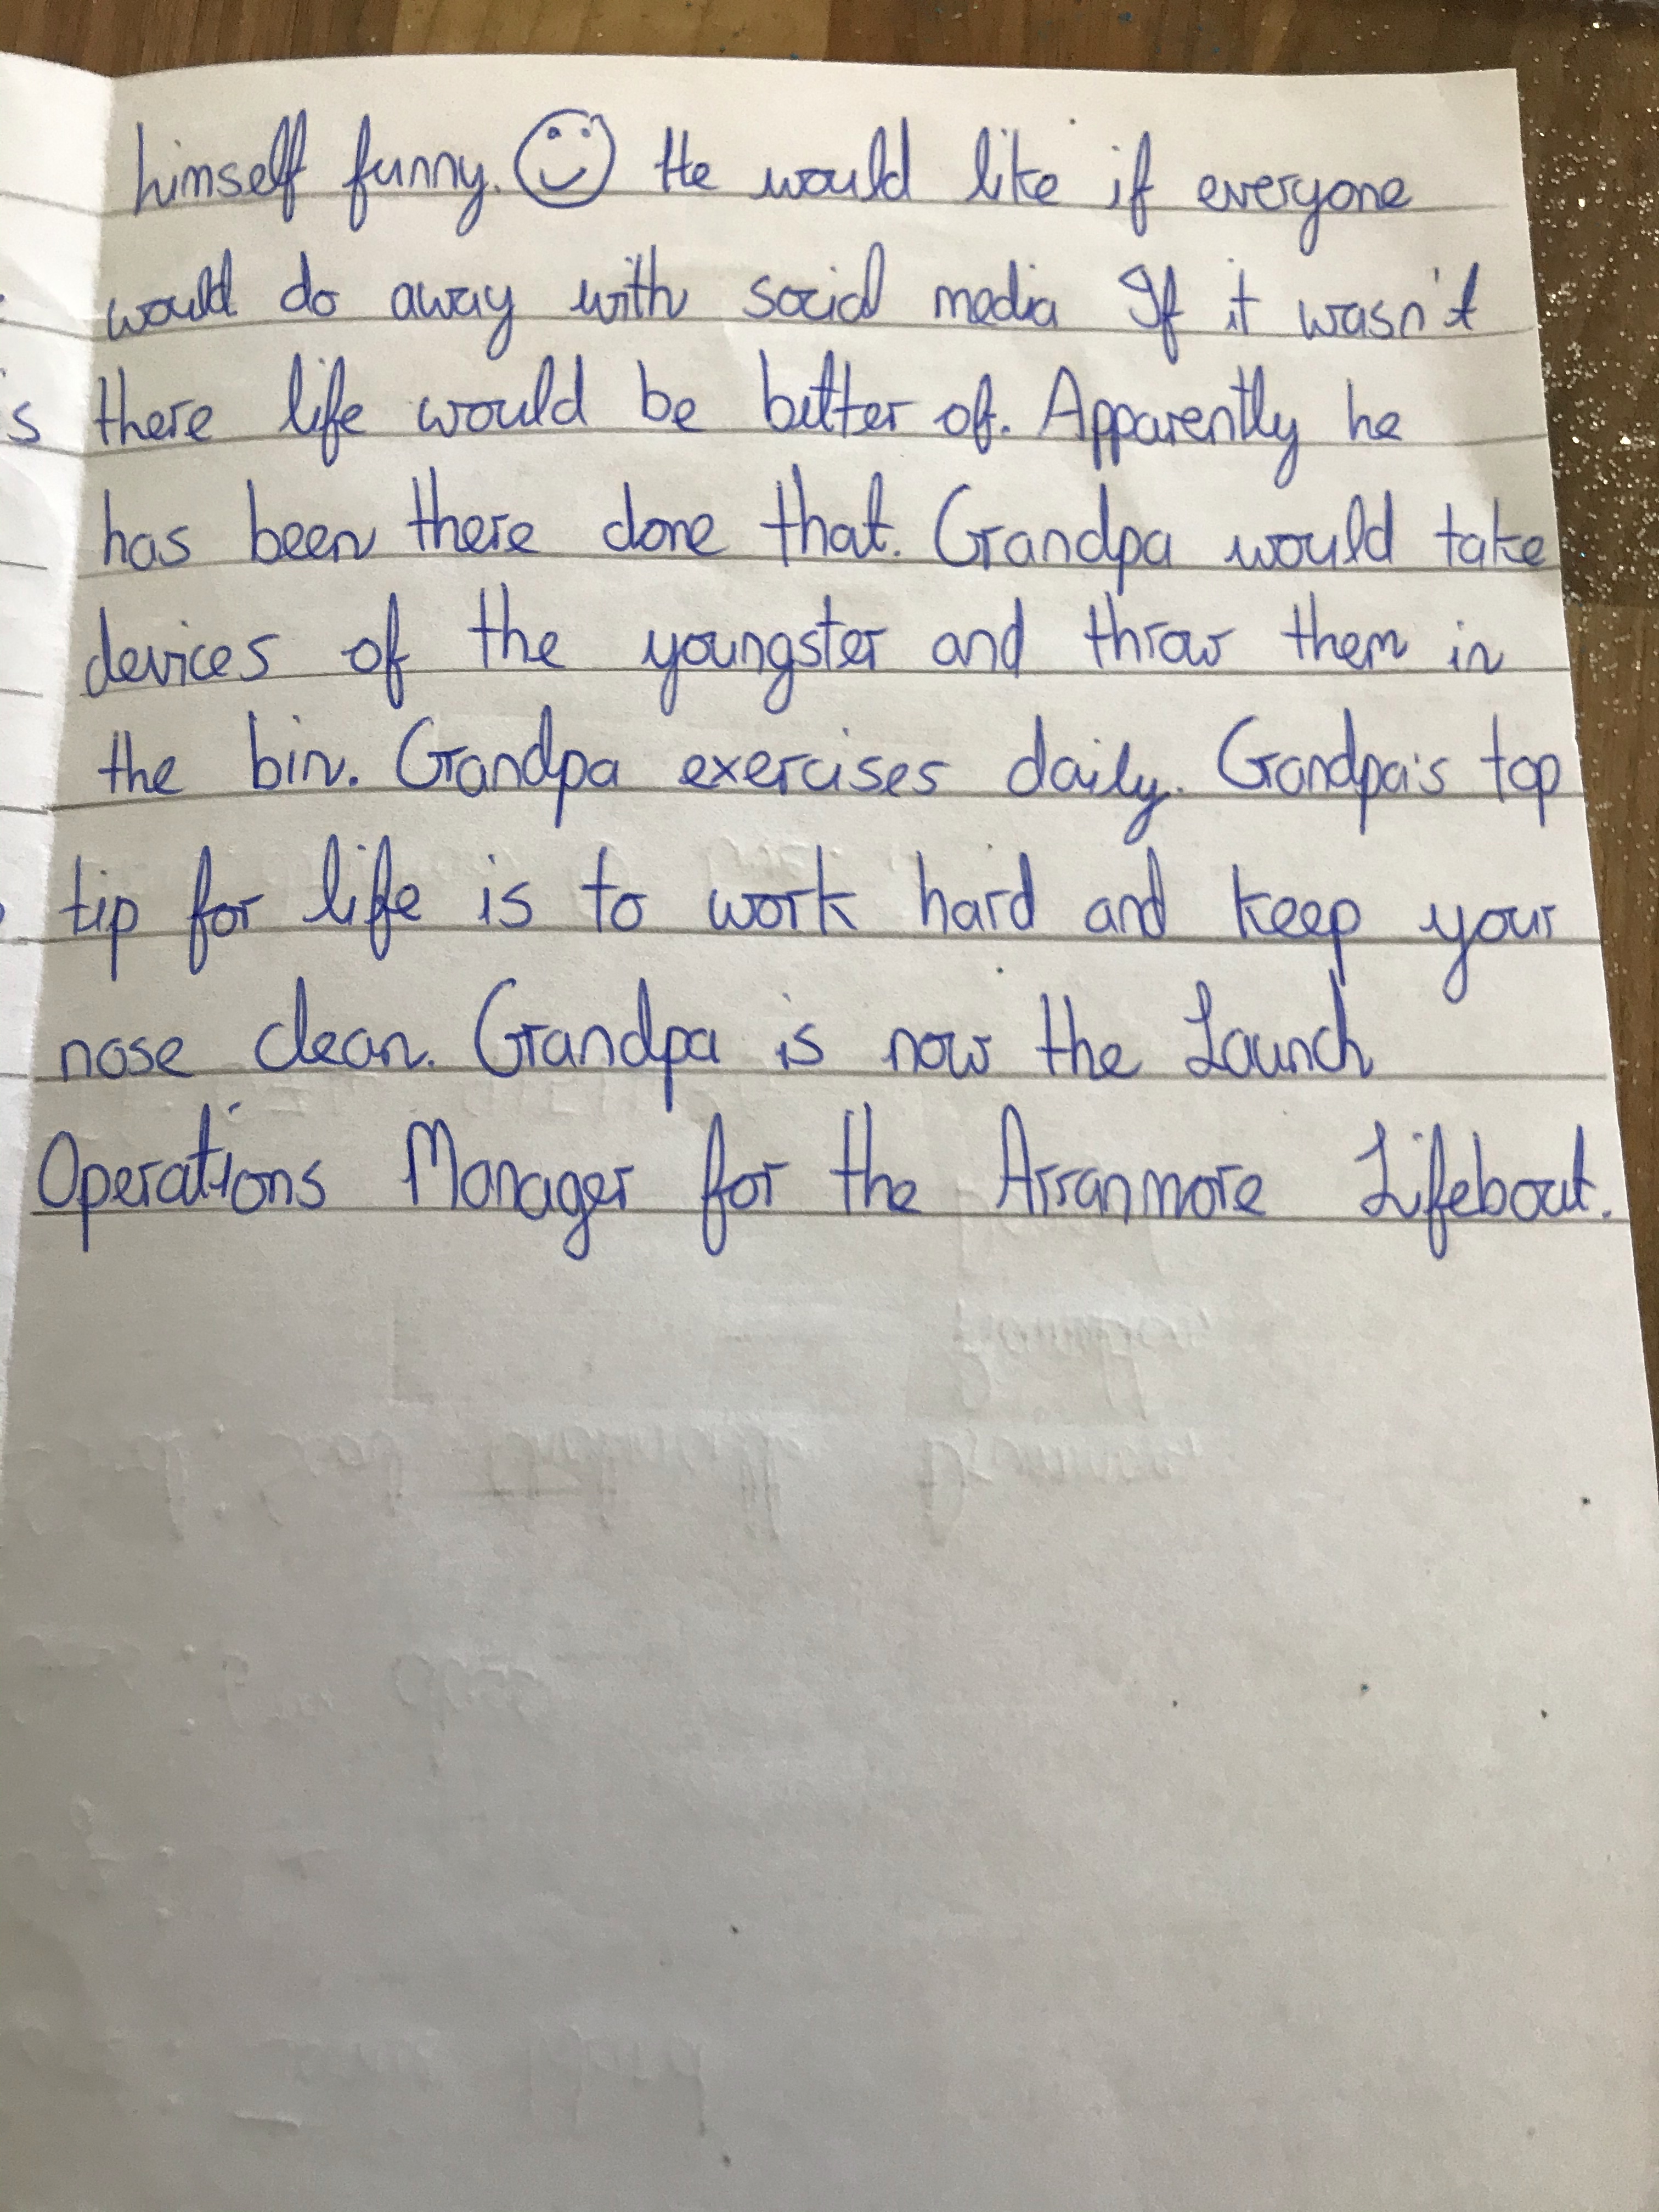 himself funny. ☺ He would like if everyone
would do away with social media If it wasn't
there life would be better of. Apparently he
has been there done that. Grandpa would take
devices of the youngster and throw them in
the bin. Grandpa exercises daily. Grandpa's top
tip for life is to work hard and keep your
nose clean. Grandpa is now the Launch
Operations Manager for the Arranmore Lifeboat.